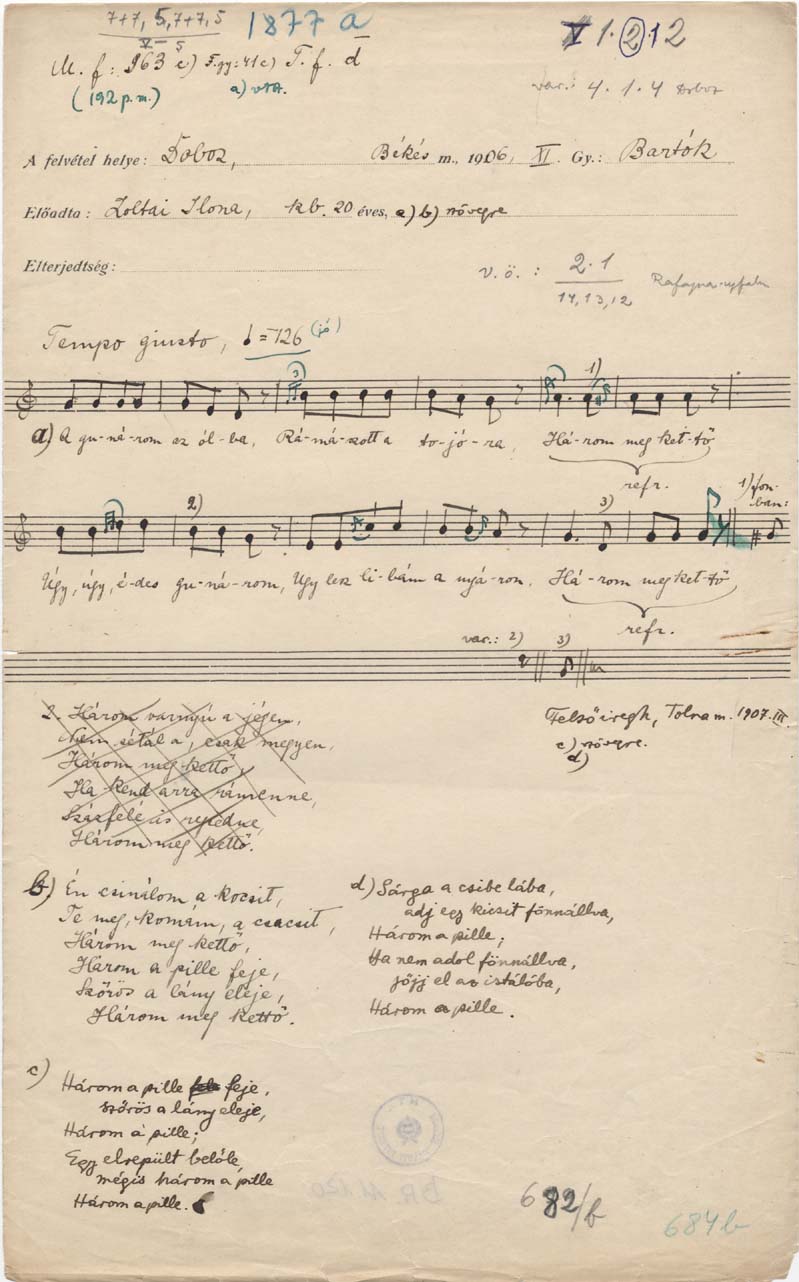 7+7, 5, 7+7, 5
V – 5
1877 a
V 1.2.12
M. f.: 963 c) F.gy: 41c) T. f. d
(192 p.m.)
a) vtA.
var.: 4.1.4 Doboz
A felvétel helye: Doboz, Békés m., 1906, XI. Gy.: Bartók
Előadta: Zoltai Ilona, kb. 20 éves, a) b) szövegre
Elterjedtség:
v. ö.: 2.1
14, 13, 12
Tempo giusto, =126 (jó)
3
1)
a) A gu-ná-rom az ól-ba, Rá-má-szott a to-jó-ra, Há-rom meg ket-tő
refr.
2)
3)
1) fon-
ban:
Úgy, úgy, é-des gu-ná-rom, Ugy lesz li-bám a nyá-ron. Há-rom meg ket-tő
refr.
var.: 2) 3)
2. Három varnyú a jégen,
Nem sétál a, csak megyen,
Három meg kettő,
Ha kend arra rámenne,
Százfelé is repedne,
Három meg kettő.
Felsőiregh, Tolna m. 1907. III.
c) szövegre.
d)
b) Én csinálom a kocsit,
Te meg, komám, a csacsit,
Három meg kettő,
Három a pille feje,
Szőrös a lány eleje,
Három meg kettő.
d) Sárga a csibe lába,
adj egy kicsit fönnállva,
Három a pille;
Ha nem adol fönnállva,
jőjj el az istálóba,
Három a pille.
c) Három a pille feje,
szőrös a lány eleje,
Három a pille;
Egy elrepült belőle,
mégis három a pille
Három a pille.
682/b
684b